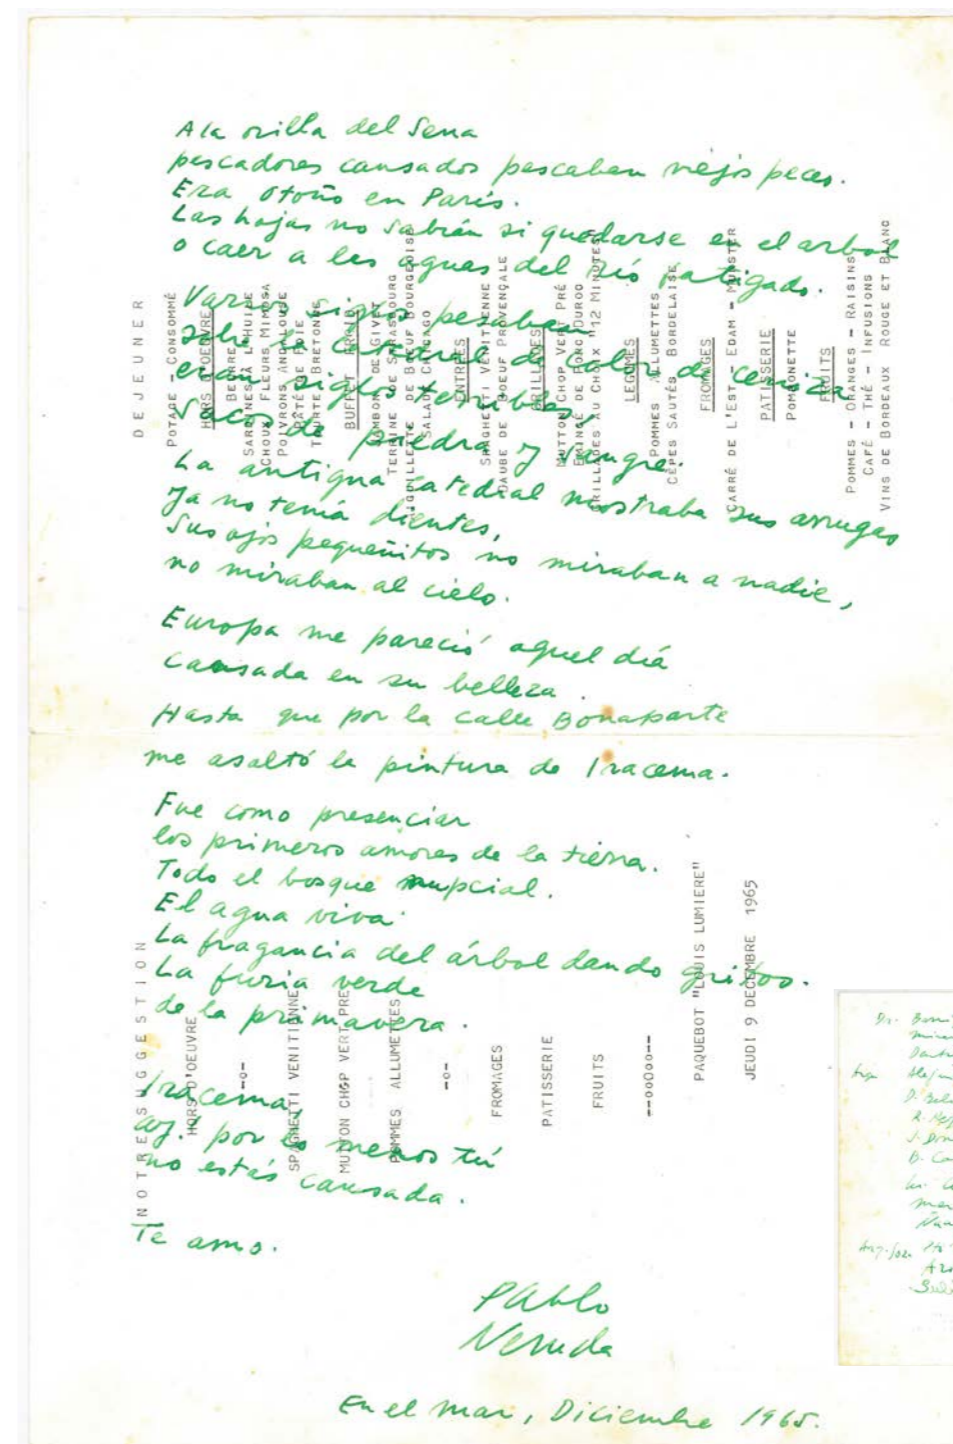 A la orilla del Sena
pescadores cansados pescaban viejos peces.
Era otoño en París.
Las hojas no sabían si quedarse en el arbol
o caer a las aguas del río fatigado.
Varios siglos pesaban
sobre la catedral de color de ceniza
eran siglos terribles
sacos de piedra y sangre.
La antigua catedral mostraba sus arrugas
Ya no tenía dientes,
Sus ojos pequeñitos no miraban a nadie,
no miraban al cielo.
Europa me pareció aquel día
cansada en su belleza.
Hasta que por la calle Bonaparte
me asaltó la pintura de Iracema.
Fue como presenciar
los primeros amores de la tierra.
Todo el bosque nupcial.
El agua viva.
La fragancia del árbol dando gritos.
La furia verde
de la primavera.
Iracema,
ay! por lo menos tú
no estás cansada.
Te amo.
Pablo
Neruda
En el mar, Diciembre 1965.
DEJEUNER
POTAGE - CONSOMMÉ
HORS D'OEUVRE
BEURRE
SARDINES À L'HUILE
CHOUX FLEURS MIMOSA
POIVRONS ANDALOUSE
PÂTÉ DE FOIE
TOURTE BRETONNE
BUFFET FROID
JAMBON DE GIVET
TERRINE DE STRASBOURG
AIGUILLETTE DE BOEUF BOURGEOISE
SALADE CHICAGO
ENTRÉES
SPAGHETTI VENITIENNE
DAUBE DE BOEUF PROVENÇALE
GRILLADES
MUTTON CHOP VERT PRÉ
EMINCÉ DE PORC DUROC
GRILLADES AU CHOIX "12 MINUTES"
LEGUMES
POMMES ALLUMETTES
CÈPES SAUTÉS BORDELAISE
FROMAGES
CARRÉ DE L'EST EDAM - MUNSTER
PATISSERIE
POMPONETTE
FRUITS
POMMES - ORANGES - RAISINS
CAFÉ - THÉ - INFUSIONS
VINS DE BORDEAUX ROUGE ET BLANC
NOTRE SUGGESTION
HORS D'OEUVRE
--o--
SPAGHETTI VENITIENNE
MUTTON CHOP VERT PRE
POMMES ALLUMETTES
--o--
FROMAGES
PATISSERIE
FRUITS
--ooOoo--
PAQUEBOT "LOUIS LUMIERE"
JEUDI 9 DECEMBRE 1965